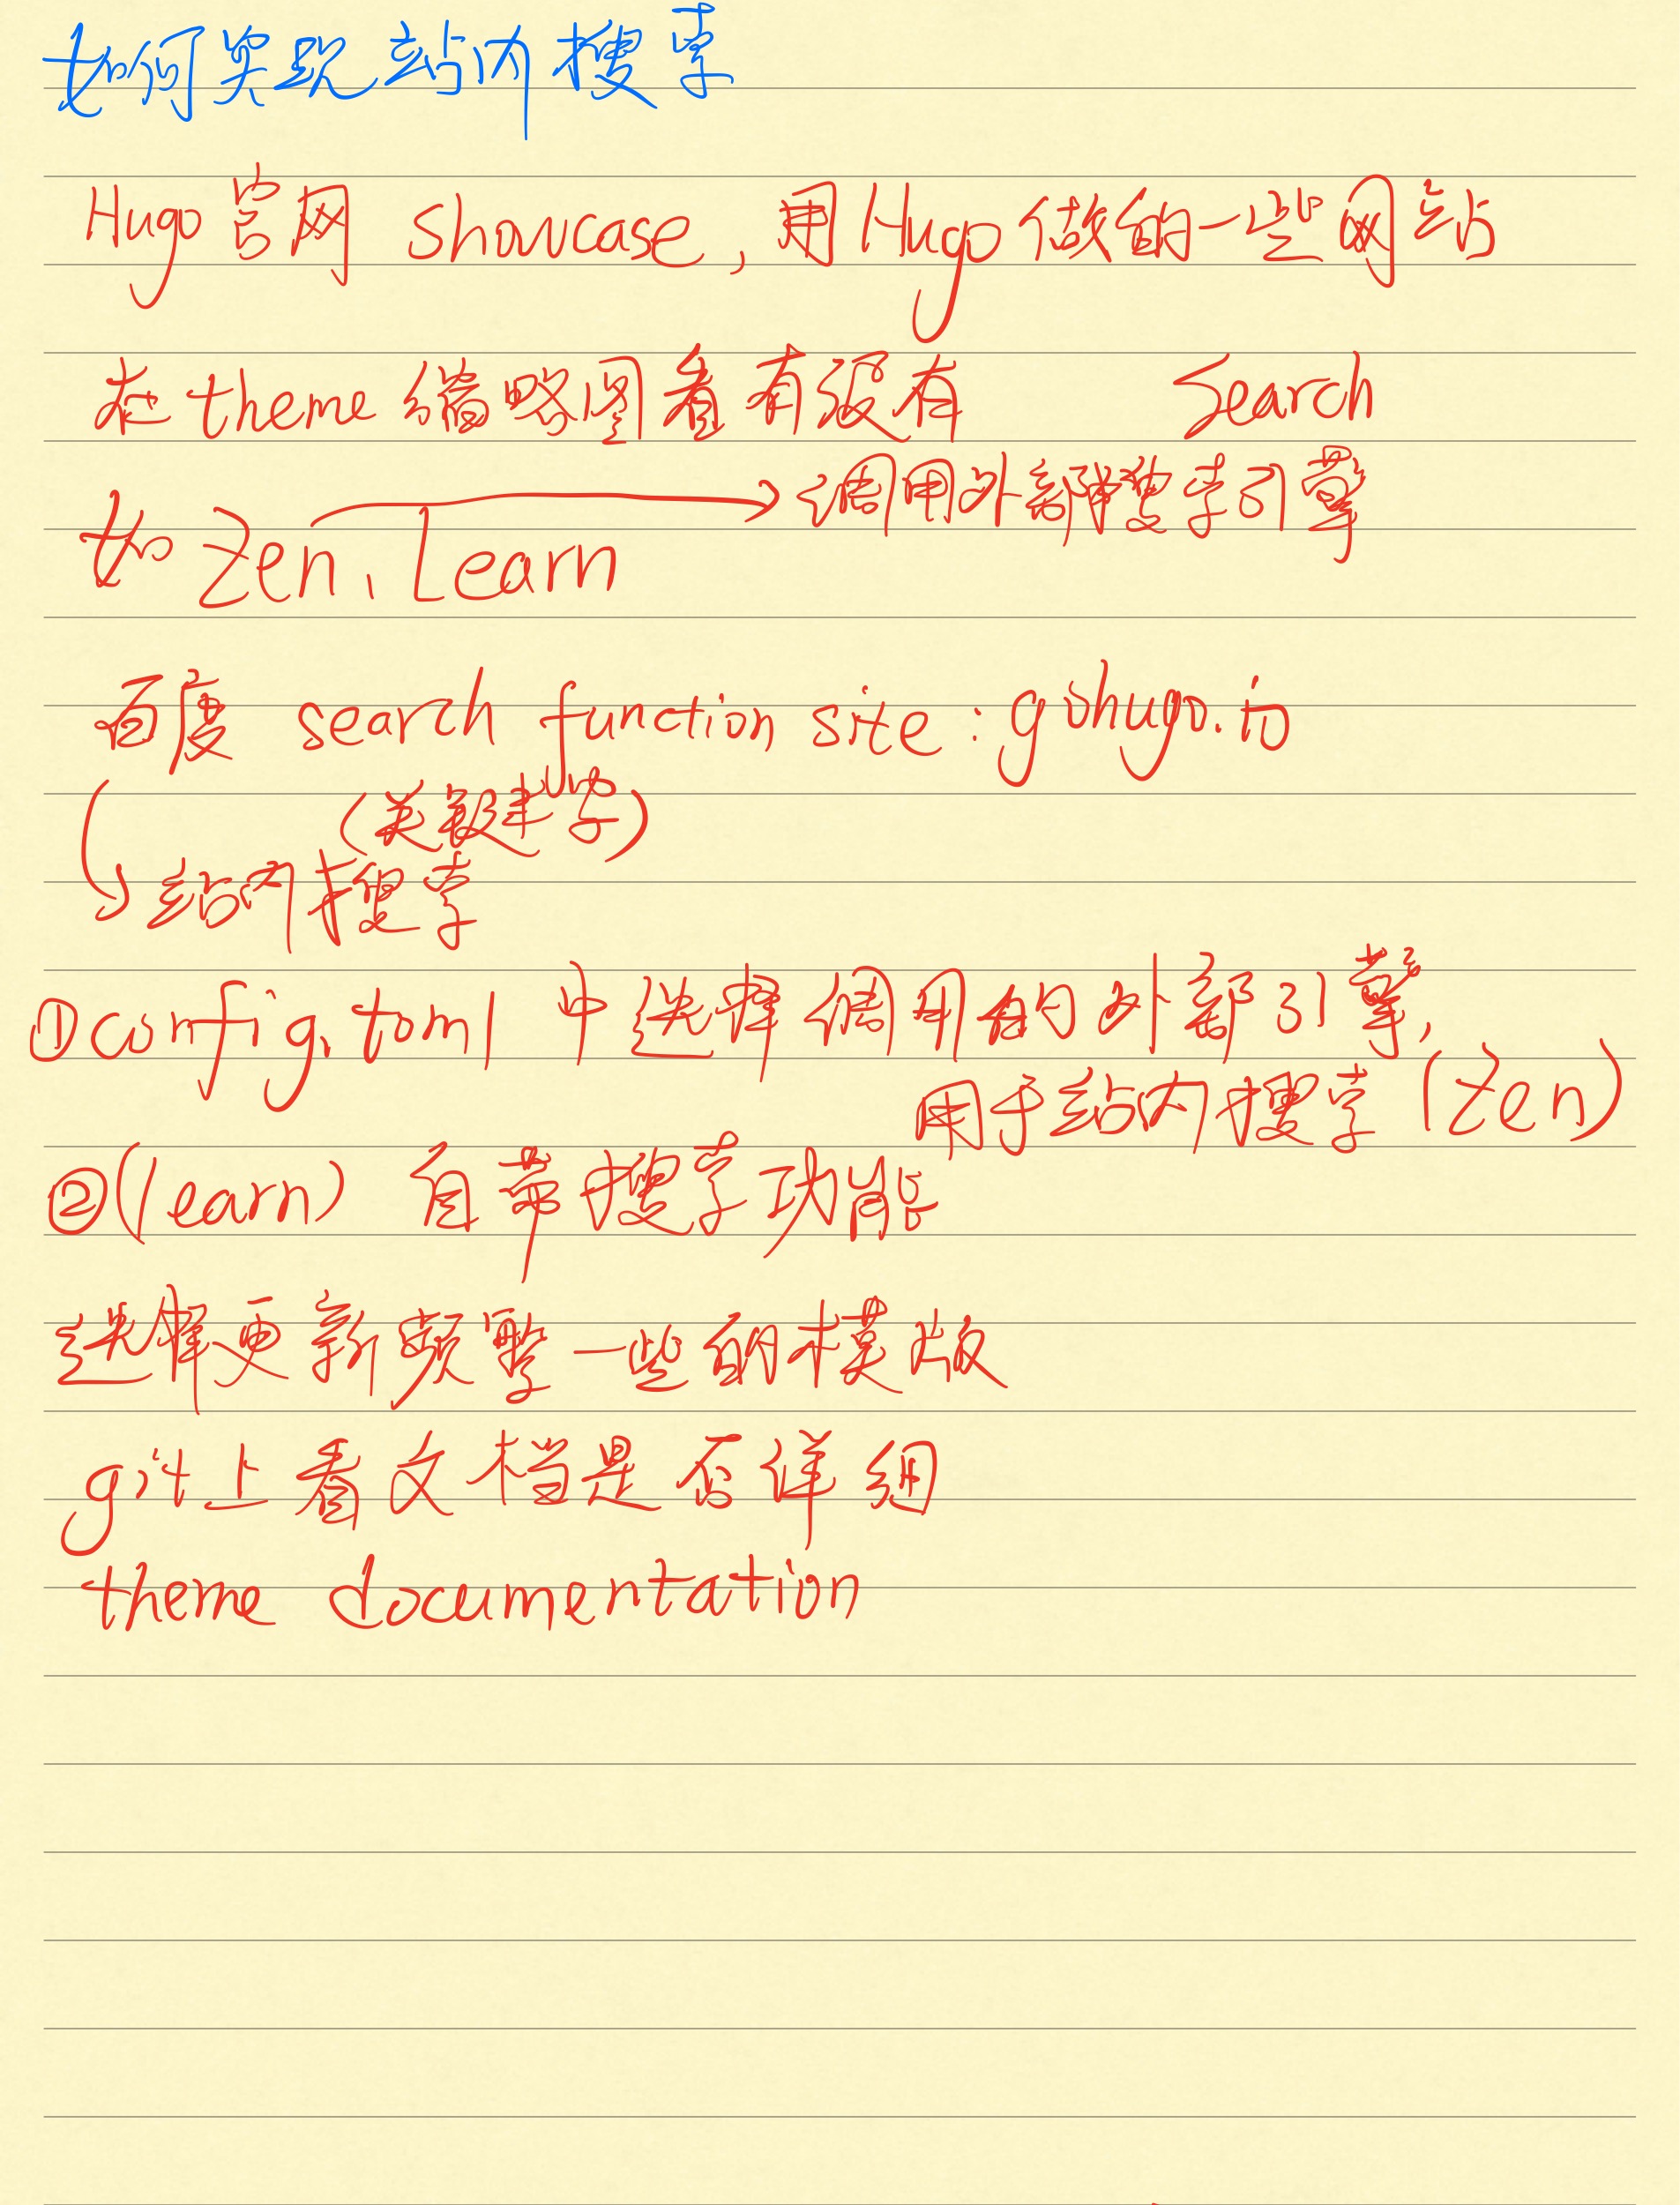 如何实现站内搜索
Hugo官网 showcase,用Hugo做的一些网站
在theme缩略图看有没有 Search
→调用外部搜索引擎
如 Zen、Learn
百度 search function site:gohugo.io
(关键字)
↳站内搜索
①config.toml 中选择调用的外部引擎,
用于站内搜索(Zen)
②(learn) 自带搜索功能
选择更新频繁一些的模版
git上看文档是否详细
theme documentation